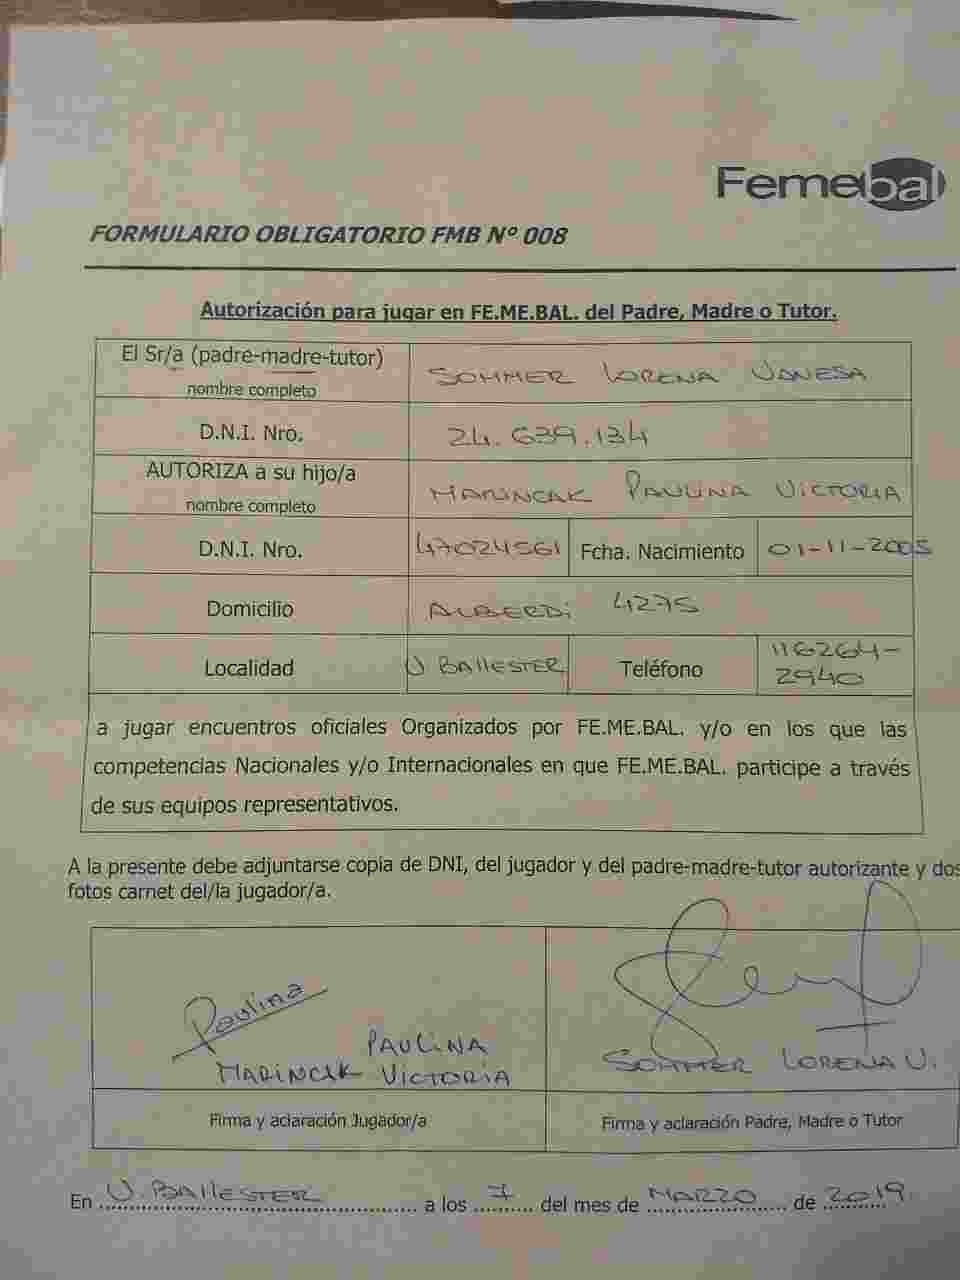 Femebal
FORMULARIO OBLIGATORIO FMB Nº 008
Autorización para jugar en FE.ME.BAL. del Padre, Madre o Tutor.
El Sr/a (padre-madre-tutor) nombre completo SOMMER LORENA VANESA
D.N.I. Nro. 24.639.134
AUTORIZA a su hijo/a nombre completo MARINCAK PAULINA VICTORIA
D.N.I. Nro. 47024561 Fcha. Nacimiento 01-11-2005
Domicilio ALBERDI 4275
Localidad V. BALLESTER Teléfono 116264-2940
a jugar encuentros oficiales Organizados por FE.ME.BAL. y/o en los que las
competencias Nacionales y/o Internacionales en que FE.ME.BAL. participe a través
de sus equipos representativos.
A la presente debe adjuntarse copia de DNI, del jugador y del padre-madre-tutor autorizante y dos
fotos carnet del/la jugador/a.
Paulina
PAULINA
MARINCAK VICTORIA
SOMMER LORENA V.
Firma y aclaración Jugador/a
Firma y aclaración Padre, Madre o Tutor
En V. BALLESTER a los 7 del mes de MARZO de 2019